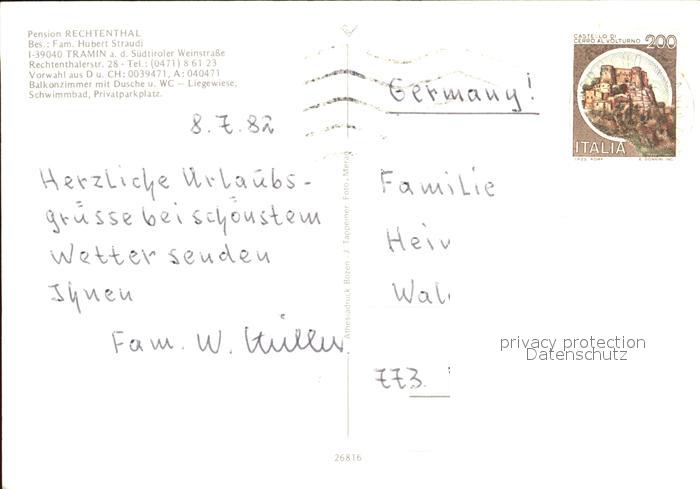 Pension RECHTENTHAL
Bes.: Fam. Hubert Straudi
I-39040 TRAMIN a. d. Südtiroler Weinstraße
Rechtenthalerstr. 28 - Tel.: (0471) 8 61 23
Vorwahl aus D u. CH: 0039471, A: 040471
Balkonzimmer mit Dusche u. WC — Liegewiese,
Schwimmbad, Privatparkplatz.
8.7.82
Herzliche Urlaubs-
grüsse bei schönstem
Wetter senden
Ihnen
Fam. W. Müller
Athesiadruck Bozen / J. Tappeiner Foto - Meran
26816
CASTELLO DI
CERRO AL VOLTURNO
200
ITALIA
Germany!
Familie
773
privacy protection
Datenschutz